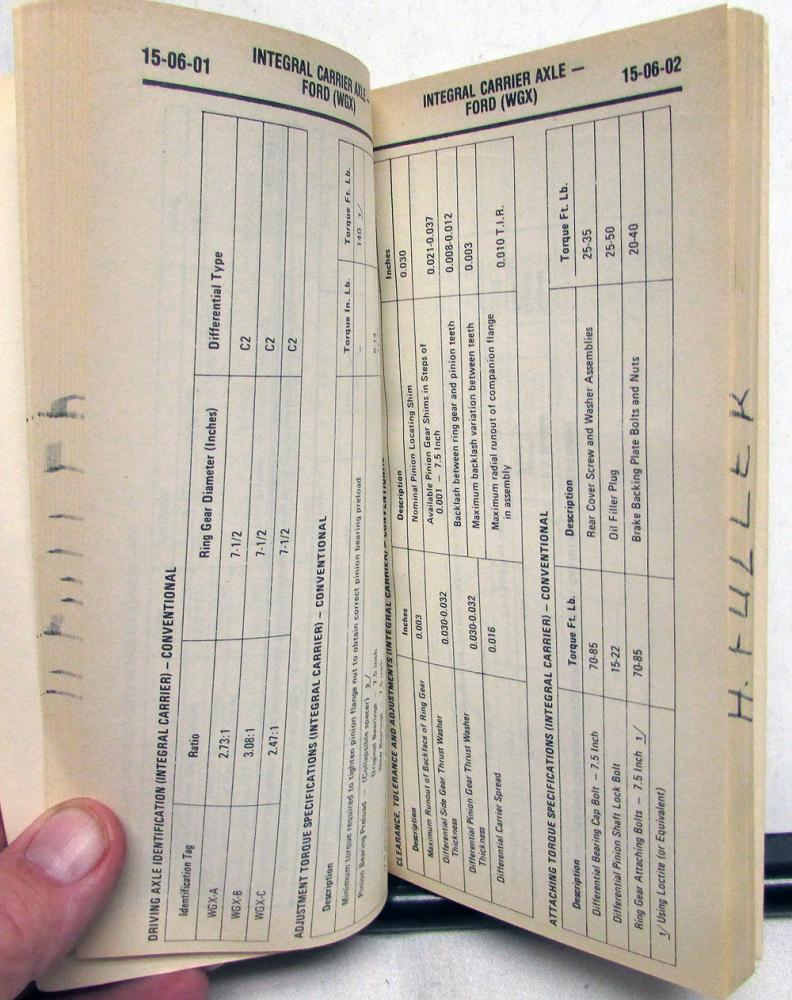 15-06-01
INTEGRAL CARRIER AXLE –
FORD (WGX)
DRIVING AXLE IDENTIFICATION (INTEGRAL CARRIER) – CONVENTIONAL
Identification Tag Ratio Ring Gear Diameter (Inches) Differential Type
WGX-A 2.73:1 7-1/2 C2
WGX-B 3.08:1 7-1/2 C2
WGX-C 2.47:1 7-1/2 C2
ADJUSTMENT TORQUE SPECIFICATIONS (INTEGRAL CARRIER) – CONVENTIONAL
Description Torque In. Lb. Torque Ft. Lb.
Minimum torque required to tighten pinion flange nut to obtain correct pinion bearing preload – 140 1/
Pinion Bearing Preload – (Collapsible spacer) 2/
Original Bearings – 7.5 Inch
15-06-02
INTEGRAL CARRIER AXLE —
FORD (WGX)
CLEARANCE, TOLERANCE AND ADJUSTMENTS (INTEGRAL CARRIER) – CONVENTIONAL
Description Inches Description Inches
Maximum Runout of Backface of Ring Gear 0.003 Nominal Pinion Locating Shim 0.030
Differential Side Gear Thrust Washer
Thickness 0.030-0.032 Available Pinion Gear Shims in Steps of
0.001 – 7.5 Inch 0.021-0.037
Differential Pinion Gear Thrust Washer
Thickness 0.030-0.032 Backlash between ring gear and pinion teeth 0.008-0.012
Maximum backlash variation between teeth 0.003
Differential Carrier Spread 0.016 Maximum radial runout of companion flange
in assembly 0.010 T.I.R.
ATTACHING TORQUE SPECIFICATIONS (INTEGRAL CARRIER) – CONVENTIONAL
Description Torque Ft. Lb. Description Torque Ft. Lb.
Differential Bearing Cap Bolt – 7.5 Inch 70-85 Rear Cover Screw and Washer Assemblies 25-35
Differential Pinion Shaft Lock Bolt 15-22 Oil Filler Plug 25-50
Ring Gear Attaching Bolts – 7.5 Inch 1/ 70-85 Brake Backing Plate Bolts and Nuts 20-40
1/ Using Loctite (or Equivalent)